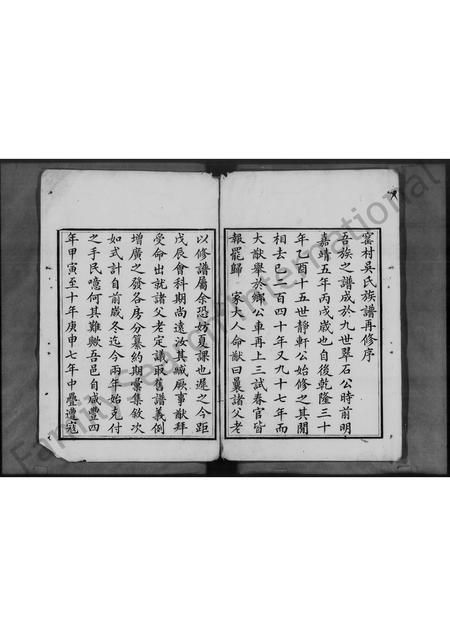 窰村吳氏族譜再修序
吾族之譜成於九世翠石公時前明
嘉靖五年丙戌歲也自後乾隆三十
年乙酉十五世靜軒公始修之其閒
相去已二百四十年又九十七年而
大猷舉於鄉公車再上三試春官皆
報罷歸 家大人命猷曰曩諸父老
以修譜屬余恐妨夏課也遲之今距
戊辰會科期尚遠汝其緘厥事猷拜
受命出就諸父老定議取舊譜義例
增廣之發各房分纂約期彙集敘次
如式計自前歲冬迄今兩年始克付
之手民噫何其難歟吾邑自咸豐四
年甲寅至十年庚申七年中疊遭寇
FamilySearch International